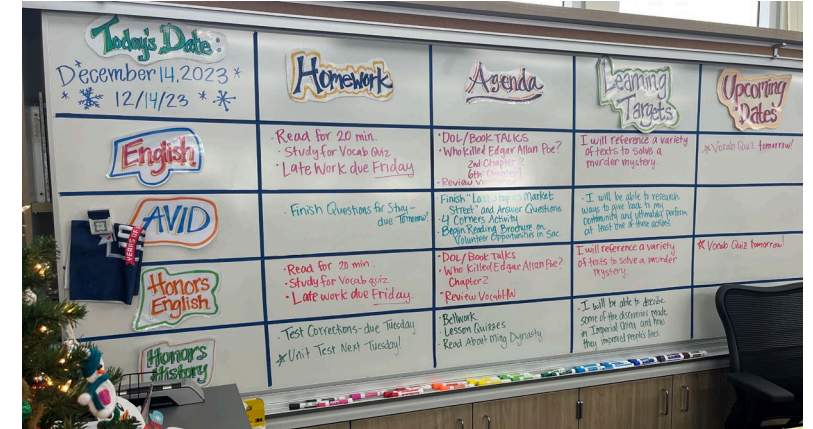 Today's Date:
December 14, 2023
12/14/23
Homework
Agenda
Learning
Targets
Upcoming
Dates
English
· Read for 20 min.
· Study for Vocab Quiz
· Late Work due Friday
· DOL/Book TALKS
· Who Killed Edgar Allan Poe?
2nd: Chapter 2
6th: Chapter 1
· Review
I will reference a variety
of texts to solve a
murder mystery.
Vocab Quiz tomorrow!
AVID
· Finish Questions for Stray-
due Tomorrow!
· Finish "Last Stop on Market
Street" and Answer Questions
· 4 Corners Activity
· Begin Reading Brochure on
Volunteer Opportunities in Sac.
· I will be able to research
ways to give back to my
community and ultimately perform
at least one of these actions.
Honors
English
· Read for 20 min.
· Study for Vocab quiz
· Late work due Friday.
· DOL/Book Talks
· Who Killed Edgar Allan Poe?
Chapter 2
· Review Vocab HW
I will reference a variety
of texts to solve a murder
mystery.
Vocab Quiz tomorrow!
Honors
History
· Test Corrections-due Tuesday
Unit Test Next Tuesday!
· Bellwork
· Lesson Quizzes
· Read About Ming Dynasty
· I will be able to describe
some of the discoveries made
in Imperial China and how
they improved people's lives.
YEARS OF